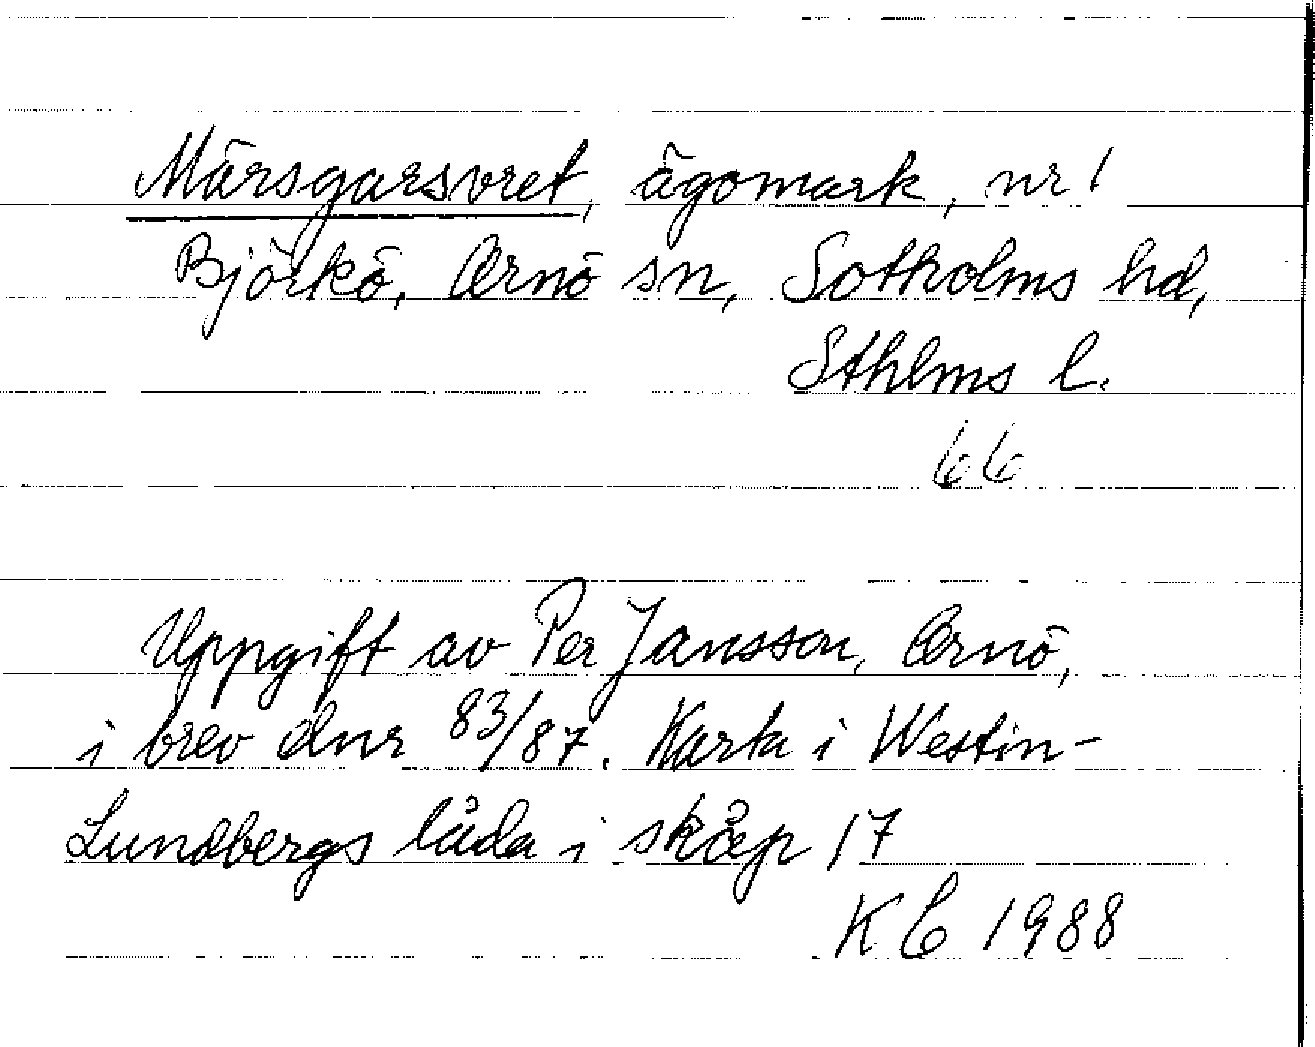 Märsgarsvret, ägomark, nr 1
Björkö, Ornö sn, Sotholms hd,
Sthlms l.
66
Uppgift av Per Jansson, Ornö,
i brev dnr 83/87. Karta i Westin-
Lundbergs låda i skåp 17
KC 1988